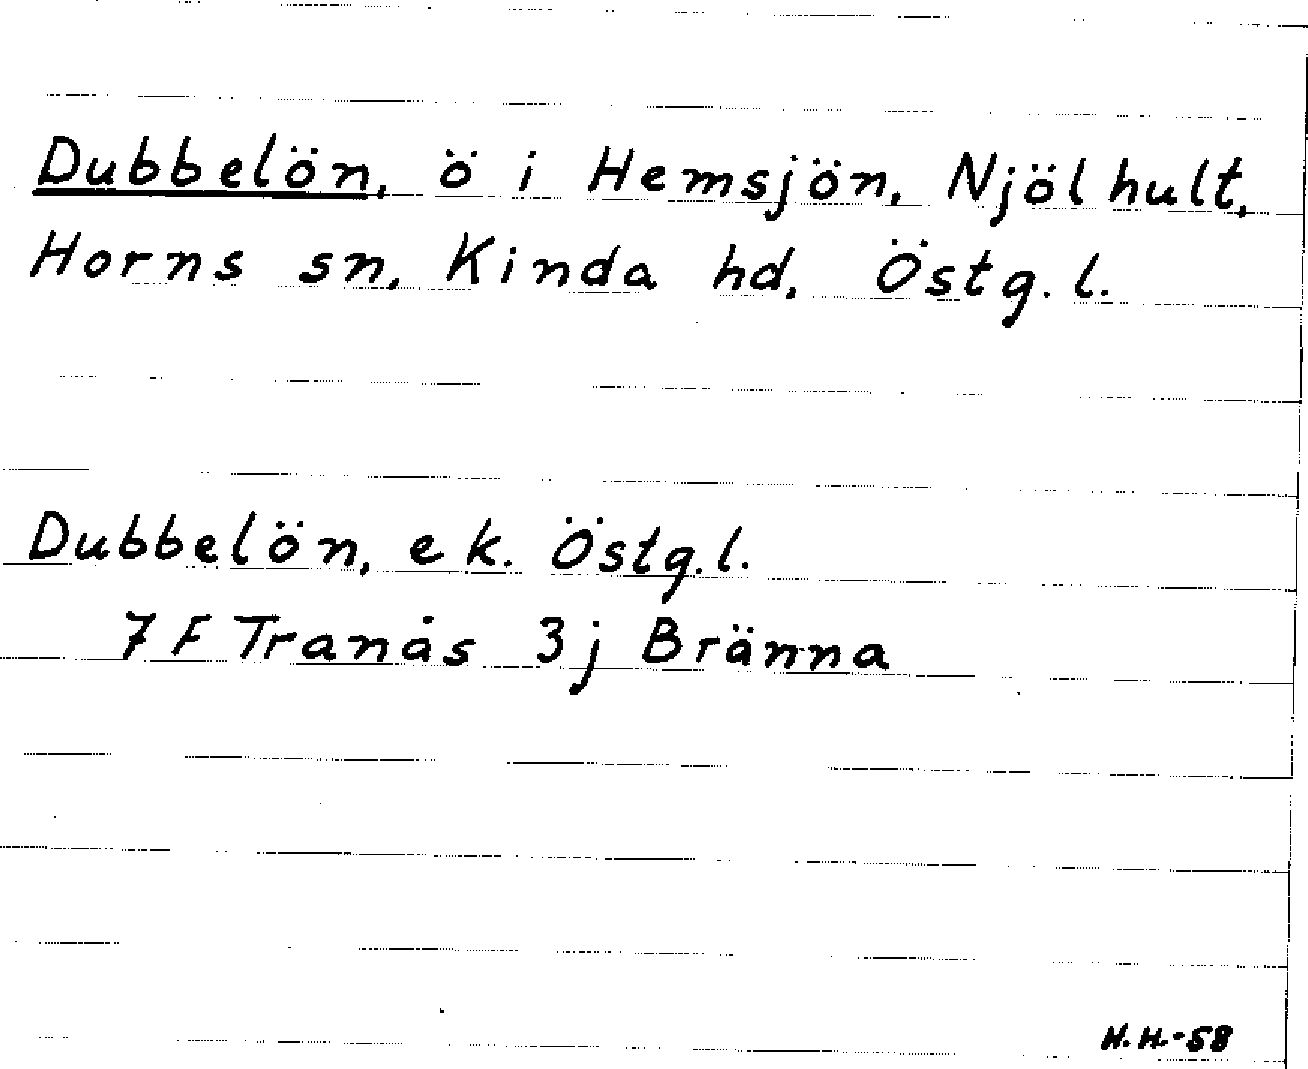 Dubbelön, ö i Hemsjön, Njölhult,
Horns sn, Kinda hd, Östg. l.
Dubbelön, ek. Östg. l.
7 F Tranås 3j Bränna
H.H.-58